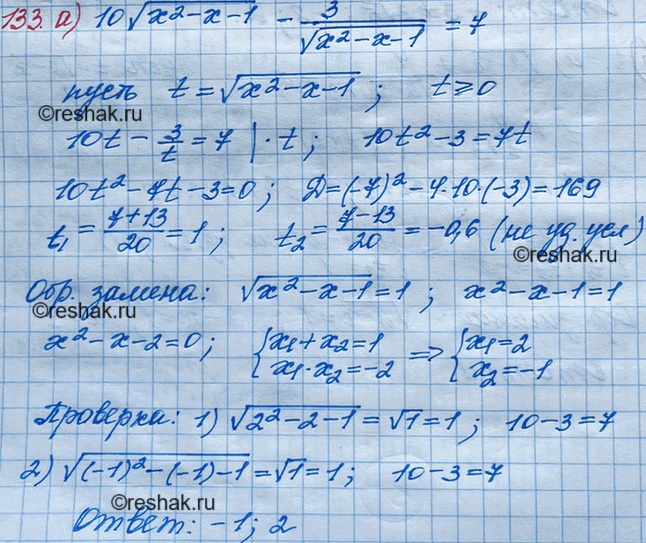 133. а) 10√(x²-x-1) - 3/√(x²-x-1) = 7
пусть t = √(x²-x-1) ; t ⩾ 0
©reshak.ru
10t - 3/t = 7 | · t ; 10t² - 3 = 7t
10t² - 7t - 3 = 0 ; Д = (-7)² - 4·10·(-3) = 169
t₁ = (7+13)/20 = 1 ; t₂ = (7-13)/20 = -0,6 (не уд. усл)
©reshak.ru
Обр. замена: √(x²-x-1) = 1 ; x²-x-1 = 1
©reshak.ru
x²-x-2=0 ; {x₁+x₂=1 x₁·x₂=-2 => {x₁=2 x₂=-1
Проверка: 1) √(2²-2-1) = √1 = 1 ; 10-3=7
2) √((-1)²-(-1)-1) = √1 = 1 ; 10-3=7
©reshak.ru
Ответ: -1; 2